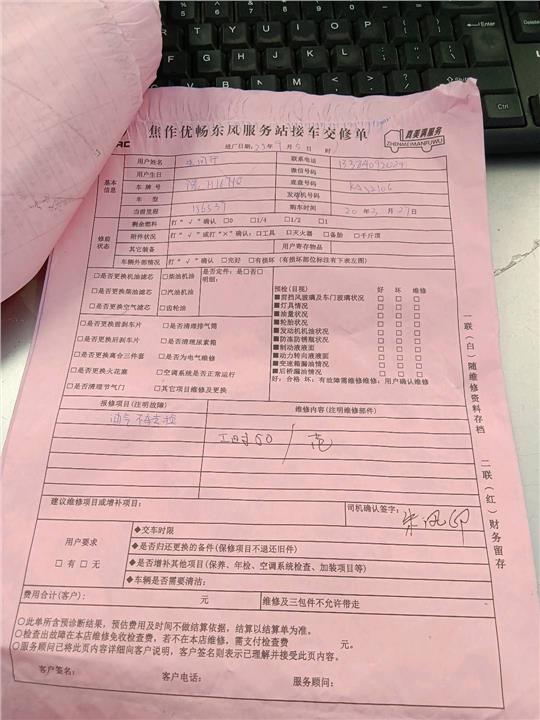 焦作优畅东风服务站接车交修单
真美满服务
ZHENMEIMANFUWU
进厂日期: 23年9月5日 时
基本信息
用户姓名 联系电话
用户生日 微信号码
车牌号 底盘号码
车型 发动机号码
当前里程 116537 购车时间 20年3月27日
修前状态
剩余燃料 打"√"确认 □0 □1/4 □1/2 □1
附件状况 打"√"或打"×"确认:□工具 □灭火器 □备胎 □千斤顶
其它装备 用户寄存物品
车辆外部情况 打"√"确认 □完好 □有损坏(有损部位标注有下表左图)
□是否更换机油滤芯 □柴油机油 是否定件:是□否□
□是否更换柴油滤芯 □汽油机油 明细:
□是否更换空气滤芯 □齿轮油
□是否更换前刹车片 □是否清理排气筒
□是否更换后刹车片 □是否清理尿素箱
□是否更换离合三件套 □是否为电气维修
□是否更换火花塞 □空调系统是否正常运行
□是否清理节气门 □其它项目维修及更换
预检(目视) 好 坏 维修
■前挡风玻璃及车门玻璃状况 □ □ □
■灯具情况 □ □ □
■油量状况 □ □ □
■轮胎状况 □ □ □
■发动机机油状况 □ □ □
■防冻防锈瓶状况 □ □ □
■制动液液面 □ □ □
■动力转向液液面 □ □ □
■变速箱漏油情况 □ □ □
■后桥漏油情况 □ □ □
好:合格 坏:有故障需维修维修:用户确认维修
报修项目(注明故障) 维修内容(注明维修部件)
工时50
建议维修项目或增补项目:
司机确认签字:
用户要求
□有 □无
◆交车时限
◆是否归还更换的备件(保修项目不退还旧件)
◆是否增补其他项目(保养、年检、空调系统检查、加装项目等)
◆车辆是否需要清洁:
费用合计(客户): 元 维修及三包件不允许带走
○此单所含预诊断结果,预估费用及时间不做结算依据,结算以结算单为准。
○检查出故障在本店维修免收检查费,若不在本店维修,需支付检查费 元。
○服务顾问已将此页内容详细向客户说明,客户签名则表示已理解并接受此页内容。
客户签名: 客户电话: 服务顾问:
一联(白)随维修资料存档
二联(红)财务留存